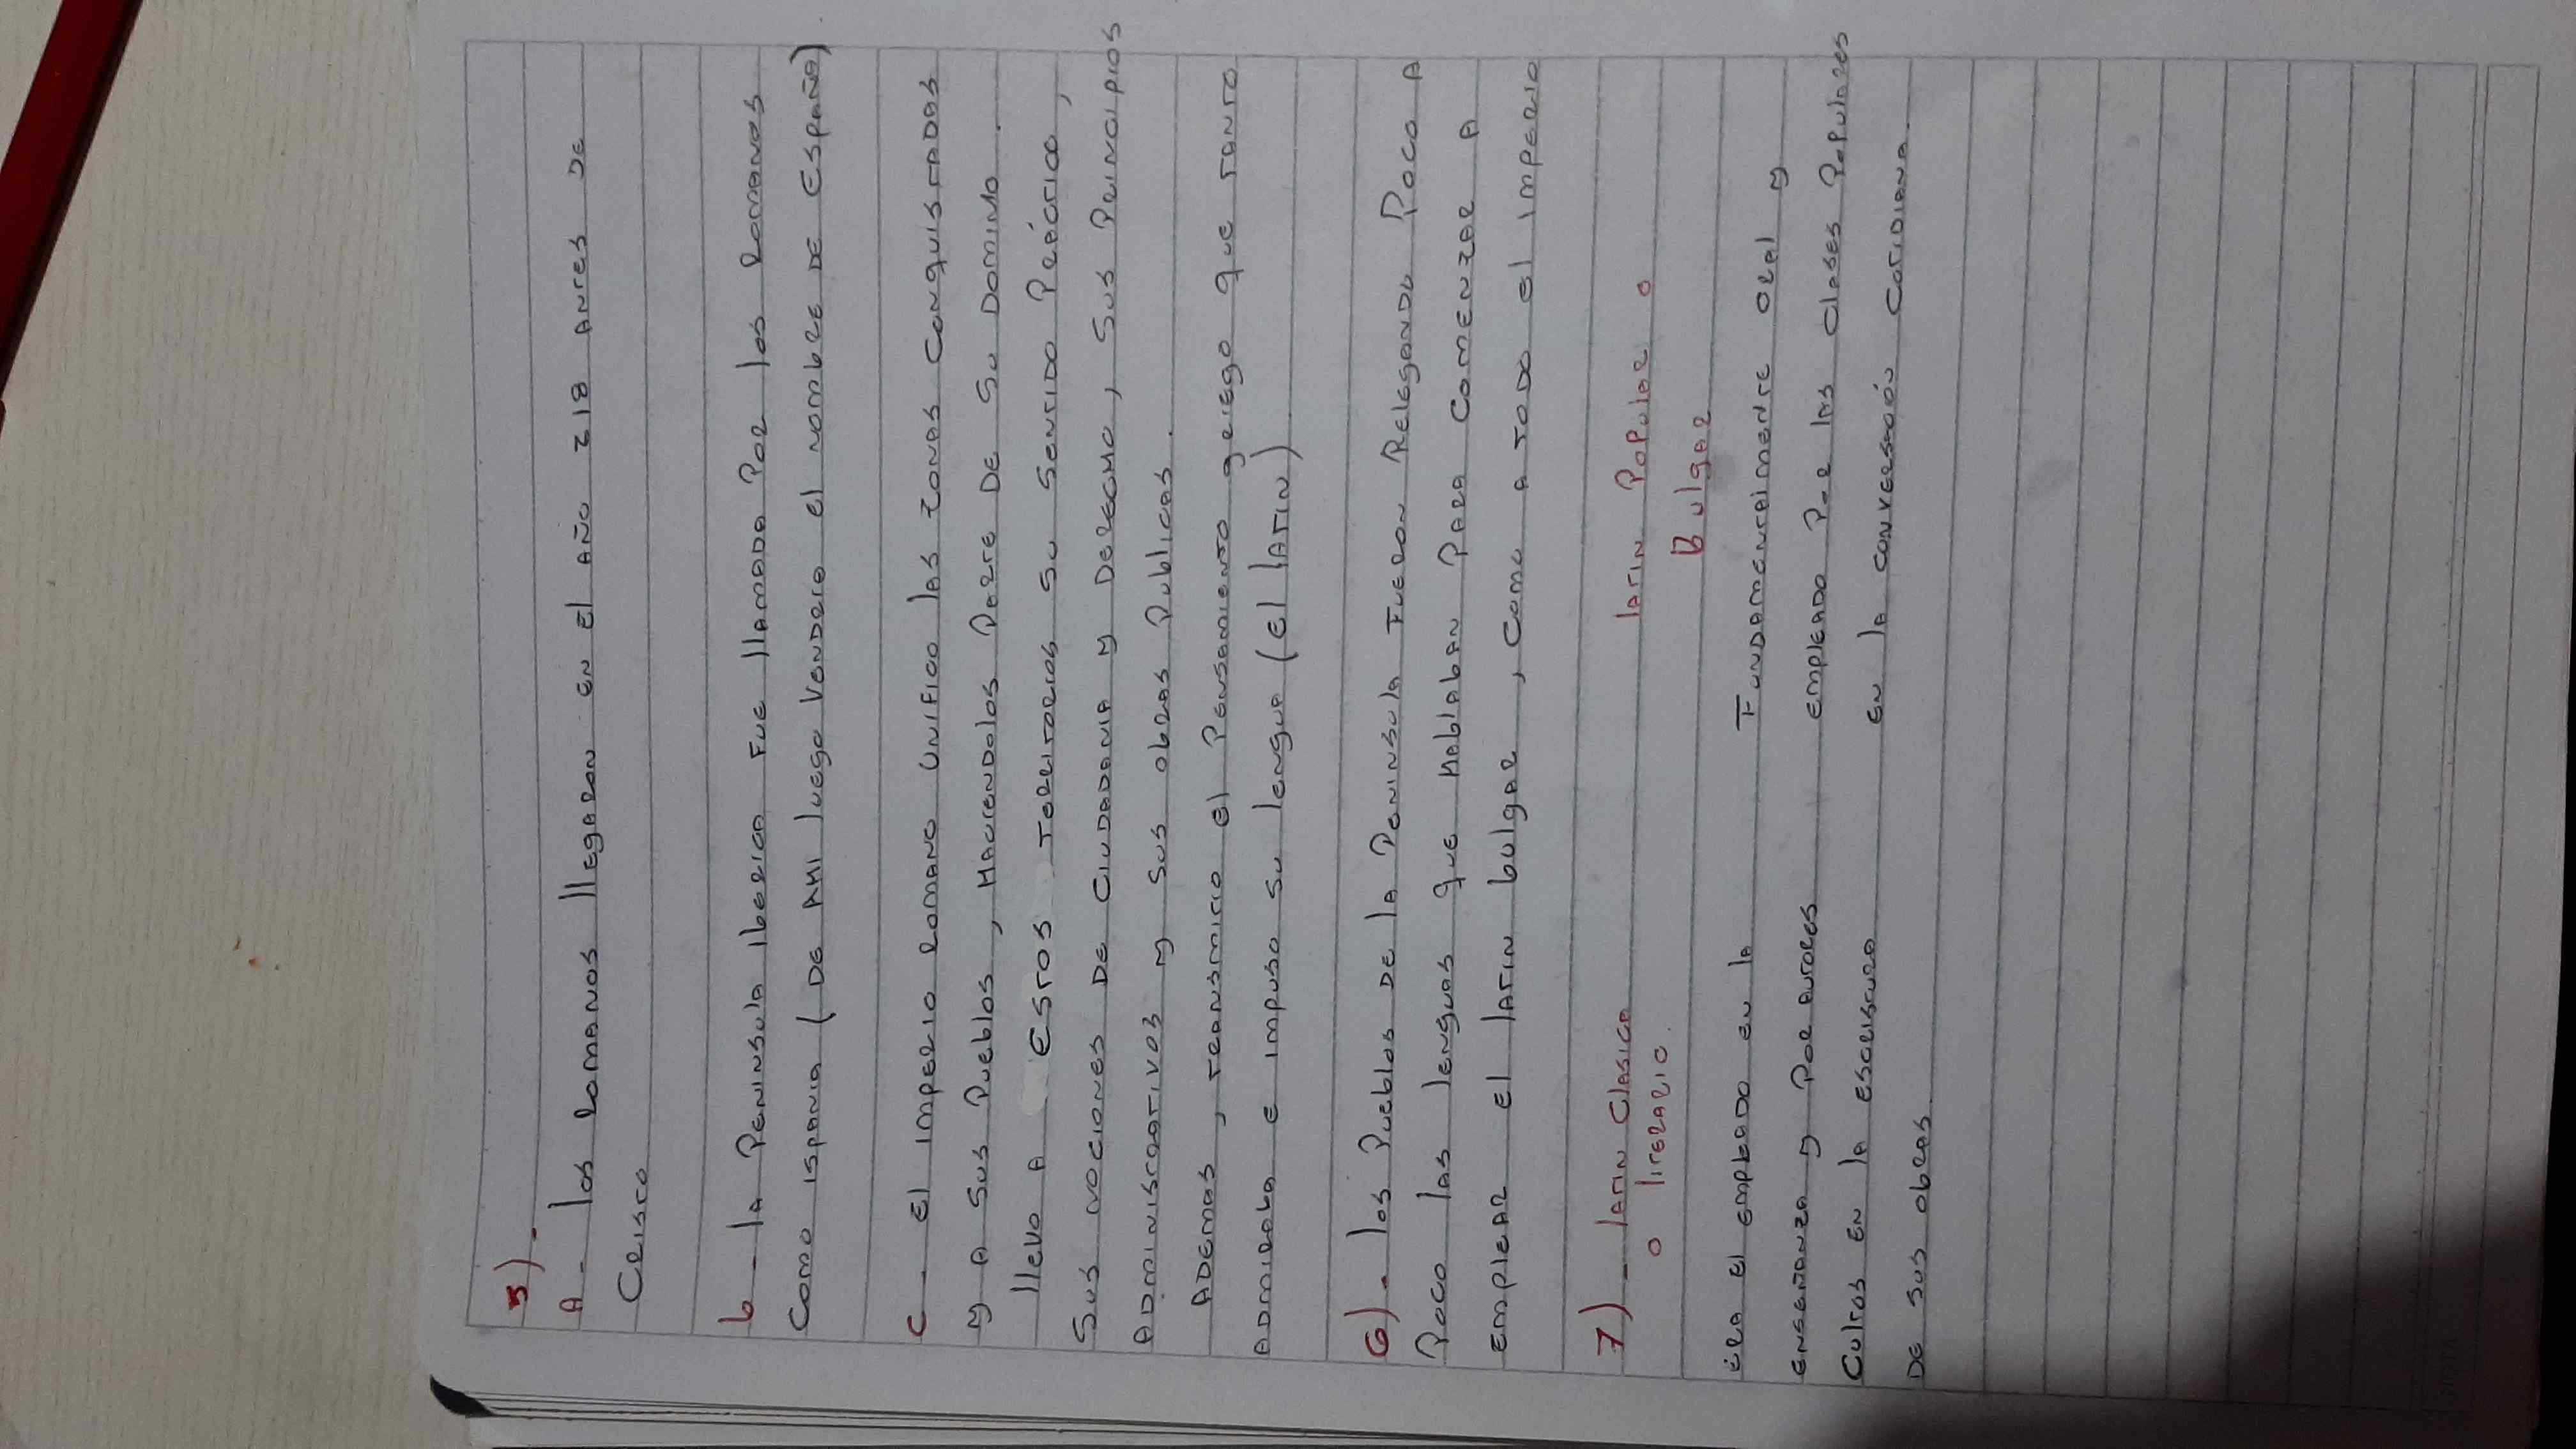 5).
A - los Romanos llegaron en el año 218 antes de
Cristo
b - la Peninsula iberica fue llamada por los Romanos
como ispania (de ahi luego vendria el nombre de España)
c - el imperio Romano unifico las zonas conquistadas
y a sus pueblos, haciendolos parte de su dominio.
llevo a estos territorios su sentido práctico,
sus nociones de ciudadania y derecho, sus principios
administrativos y sus obras publicas.
Ademas, transmitio el pensamiento griego que tanto
admiraba e impuso su lengua (el latin)
6).- los pueblos de la Peninsula fueron relegando poco a
poco las lenguas que hablaban para comenzar a
emplear el latin bulgar, como a todo el imperio
7) - latin Clasico latin Popular o
o literario. Bulgar
Era el empleado en la Fundamentalmente oral y
enseñanza y por autores empleado por las clases populares
cultos en la escritura en la conversación cotidiana.
de sus obras